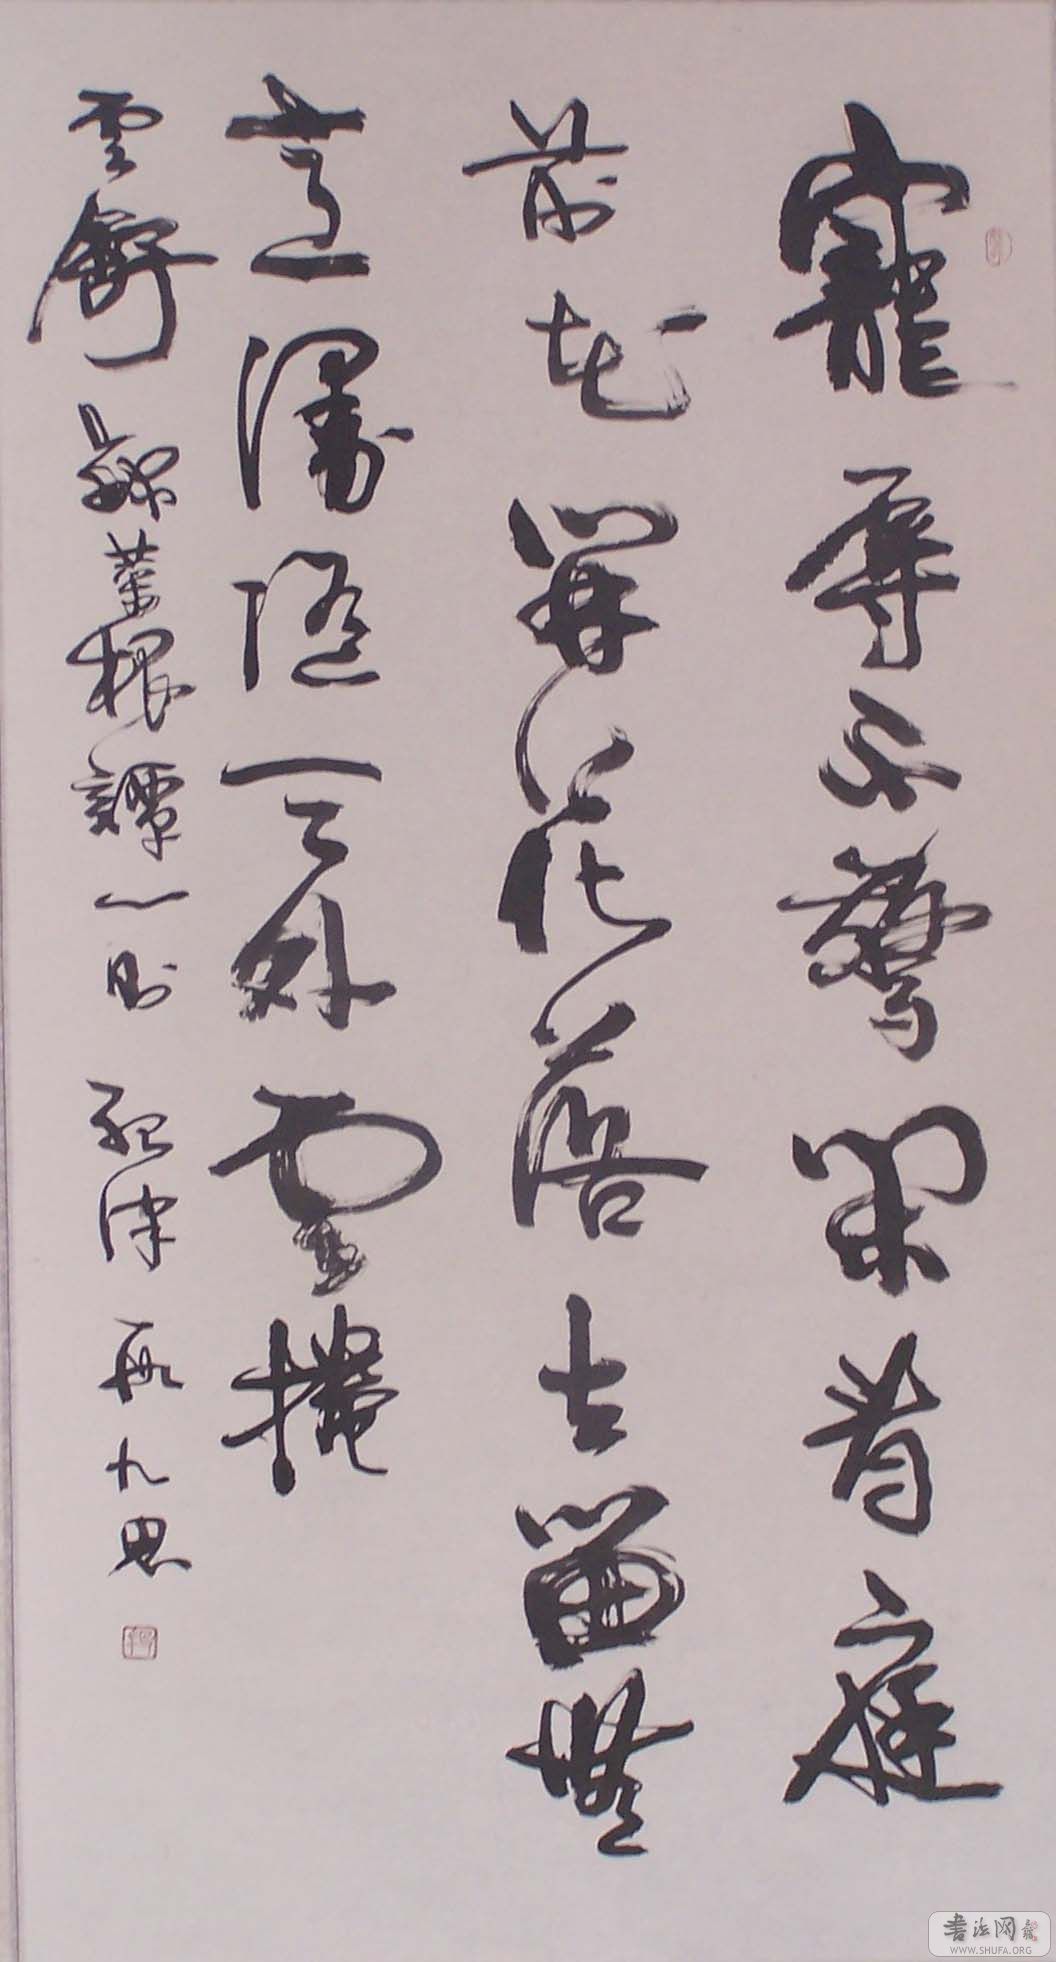 寵辱不驚閑看庭
前花開花落去留無
意漫隨天外雲捲
雲舒 錄菜根譚一則 津 九思
書法网
WWW.SHUFA.ORG